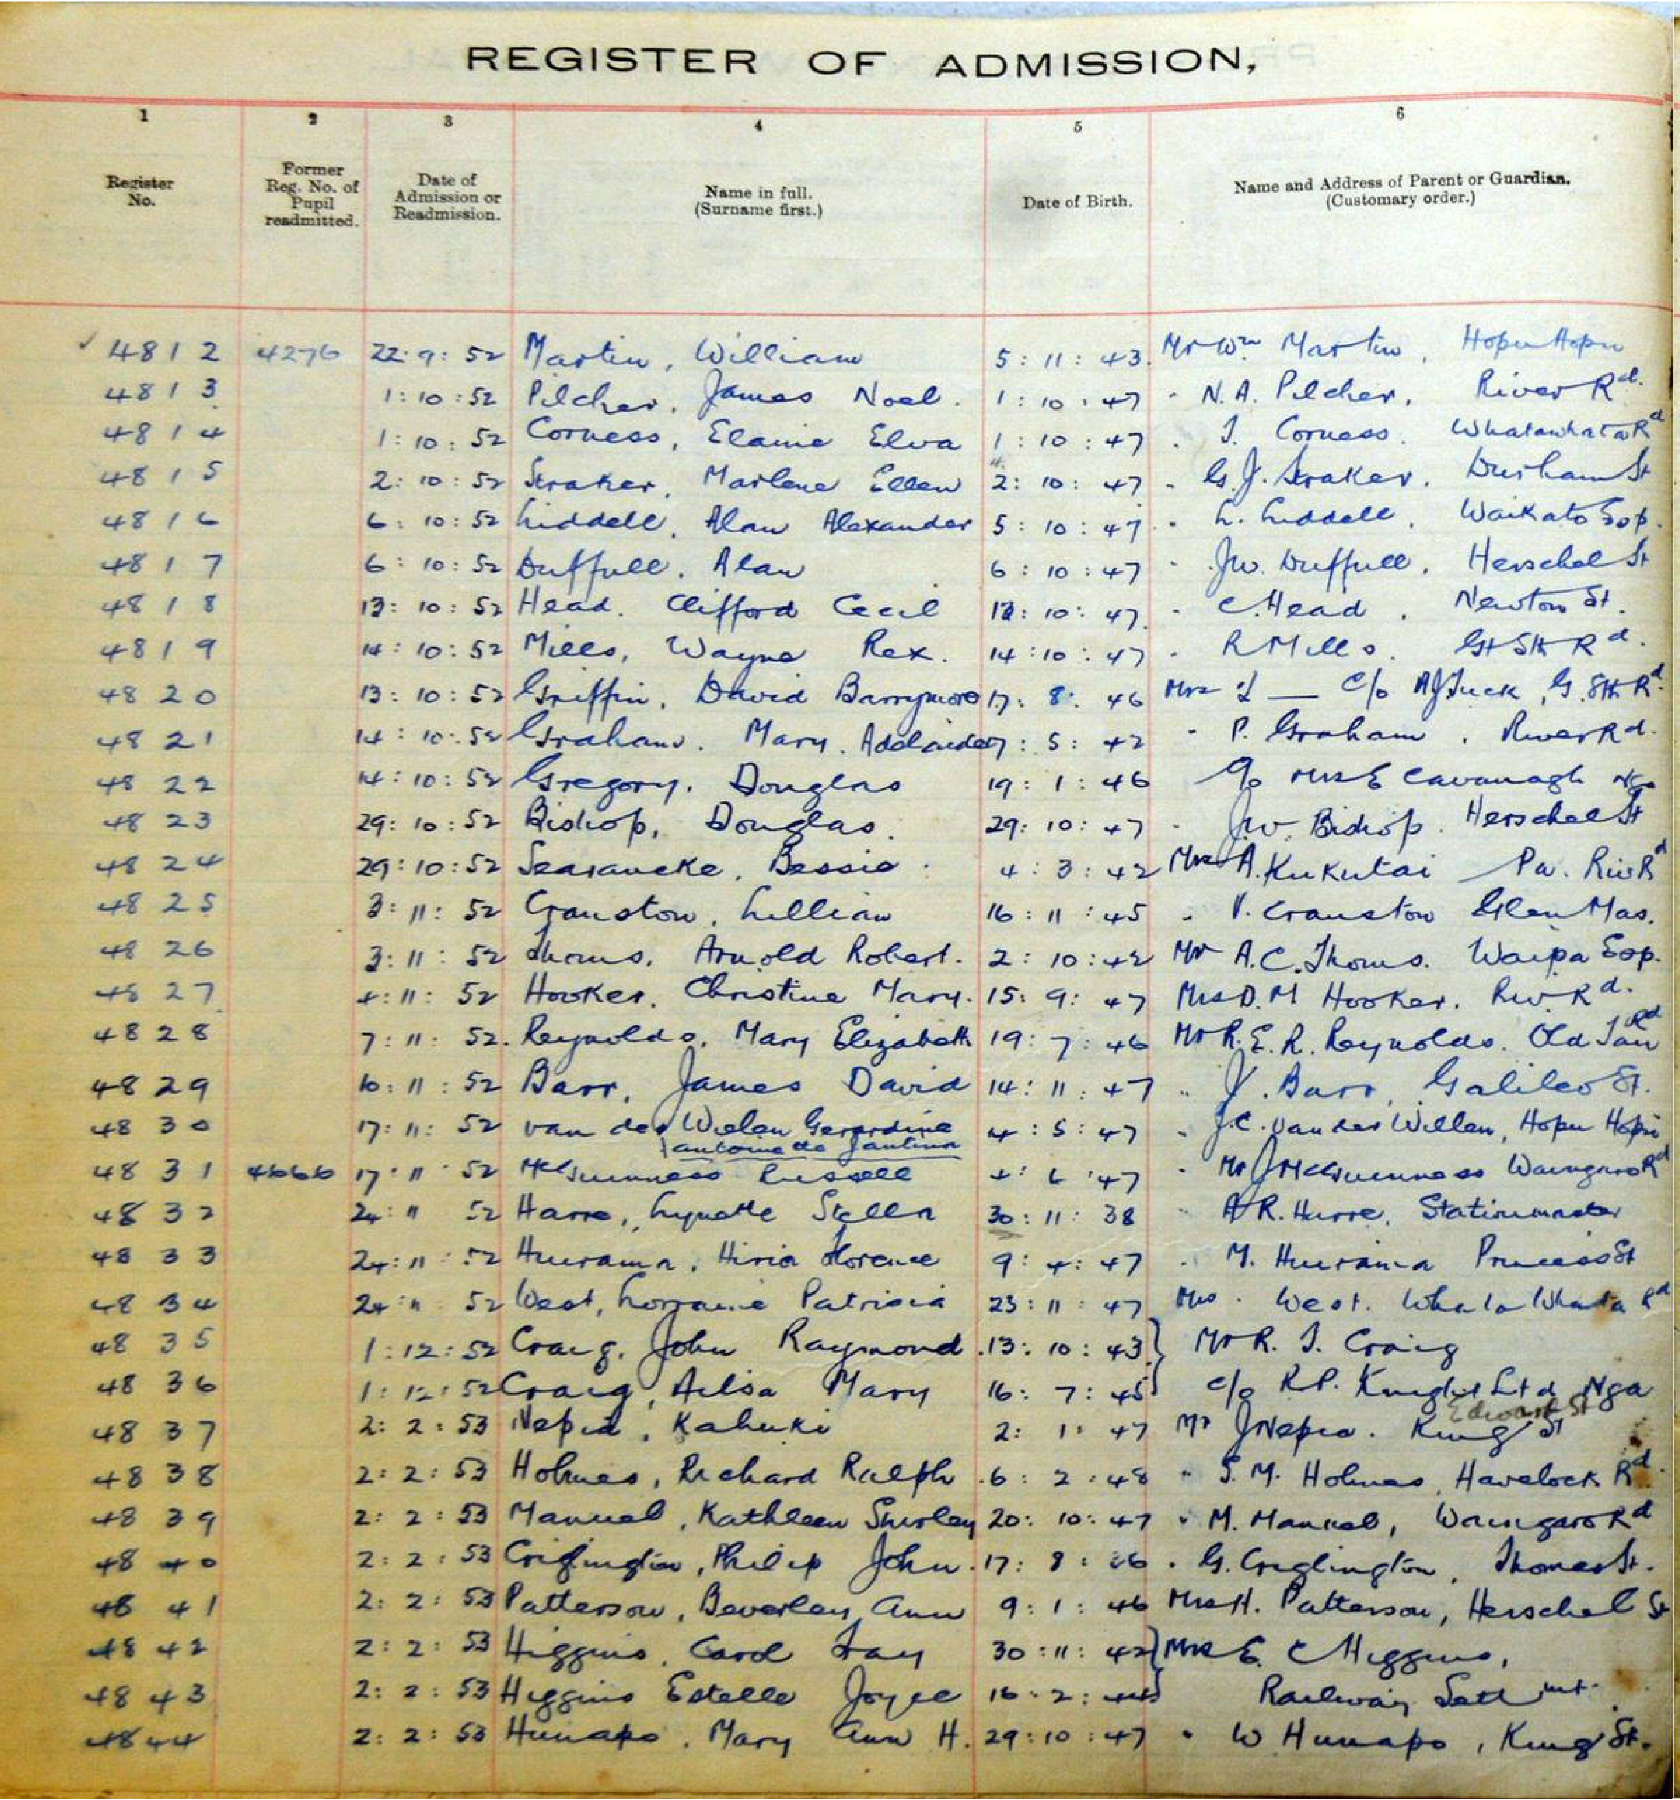 REGISTER OF ADMISSION,
1 2 3 4 5 6
Register No. Former Reg. No. of Pupil readmitted. Date of Admission or Readmission. Name in full. (Surname first.) Date of Birth. Name and Address of Parent or Guardian. (Customary order.)
4812 4276 22:9:52 Martin, William 5:11:43. Mr Wm Martin, Hopu Hopu
4813 1:10:52 Pilcher, James Noel. 1:10:47 " N.A. Pilcher, River Rd.
4814 1:10:52 Corness, Elaine Elva 1:10:47 " J. Corness. Whatawhata Rd
4815 2:10:52 Straker, Marlene Ellen 2:10:47 " G.J. Straker, Durham St
4816 6:10:52 Liddell, Alan Alexander 5:10:47 " L. Liddell, Waikato Esp.
4817 6:10:52 Duffull, Alan 6:10:47 " J.W. Duffull, Herschel St
4818 13:10:52 Head, Clifford Cecil 13:10:47 " C Head, Newton St.
4819 14:10:52 Mills, Wayne Rex. 14:10:47 " R Mills. Gt Sth Rd.
4820 13:10:52 Griffin, David Barrymore 17:8:46 Mrs I — C/o A J Tuck, G. Sth Rd.
4821 14:10:52 Graham, Mary Adelaide 7:5:42 " P. Graham, River Rd.
4822 14:10:52 Gregory, Douglas 19:1:46 C/o Mrs E Cavanagh Nga
4823 29:10:52 Bishop, Douglas. 29:10:47 " J.W. Bishop. Herschel St
4824 29:10:52 Searancke, Bessie 4:3:42 Mrs A. Kukutai Pw. Riv Rd
4825 3:11:52 Cranston, Lillian 16:11:45 " V. Cranston Glen Mas.
4826 3:11:52 Thoms, Arnold Robert. 2:10:42 Mr A.C. Thoms. Waipa Esp.
4827 4:11:52 Hooker, Christine Mary. 15:9:47 Mrs D.M Hooker, Riv. Rd.
4828 7:11:52. Reynolds, Mary Elizabeth 19:7:46 Mr R.E.R. Reynolds. Old Tau Rd
4829 10:11:52 Barr, James David 14:11:47 " J. Barr, Galileo St.
4830 17:11:52 van der Wielen Gerardine 4:5:47 " J.C. van der Willen, Hopu Hopu
antoinette Jantina
4831 4666 17:11:52 McGuinness Russell 4:6:47 " Mr J McGuinness Waingaro Rd
4832 24:11 52 Harre, Lynette Stella 30:11:38 " A R. Harre, Stationmaster
4833 24:11:52 Huirama, Hiria Florence 9:4:47 " M. Huirama Princess St
4834 24:11 52 West, Lorraine Patricia 23:11:47 Mrs. West. Whata Whata Rd
4835 1:12:52 Craig, John Raymond. 13:10:43 } Mr R. J. Craig
4836 1:12:52 Craig, Ailsa Mary 16:7:45 } c/o R.P. Knight Ltd Nga
Edward St
4837 2:2:53 Nepia, Kahuki 2:1:47 Mr J Nepia. King St
4838 2:2:53 Holmes, Richard Ralph. 6:2:48 " S.M. Holmes, Havelock Rd.
4839 2:2:53 Manuel, Kathleen Shirley 20:10:47 " M. Manuel, Waingaro Rd
4840 2:2:53 Criglington, Philip John. 17:8:46 " G. Criglington, Thomas St.
4841 2:2:53 Patterson, Beverley Ann 9:1:46 Mrs H. Patterson, Herschel St
4842 2:2:53 Higgins, Carol Fay 30:11:42 } Mrs E. C Higgins,
4843 2:2:53 Higgins Estelle Joyce 16:2:44 } Railway Settmt.
4844 2:2:53 Hunapo, Mary Ann H. 29:10:47 " W Hunapo, King St.